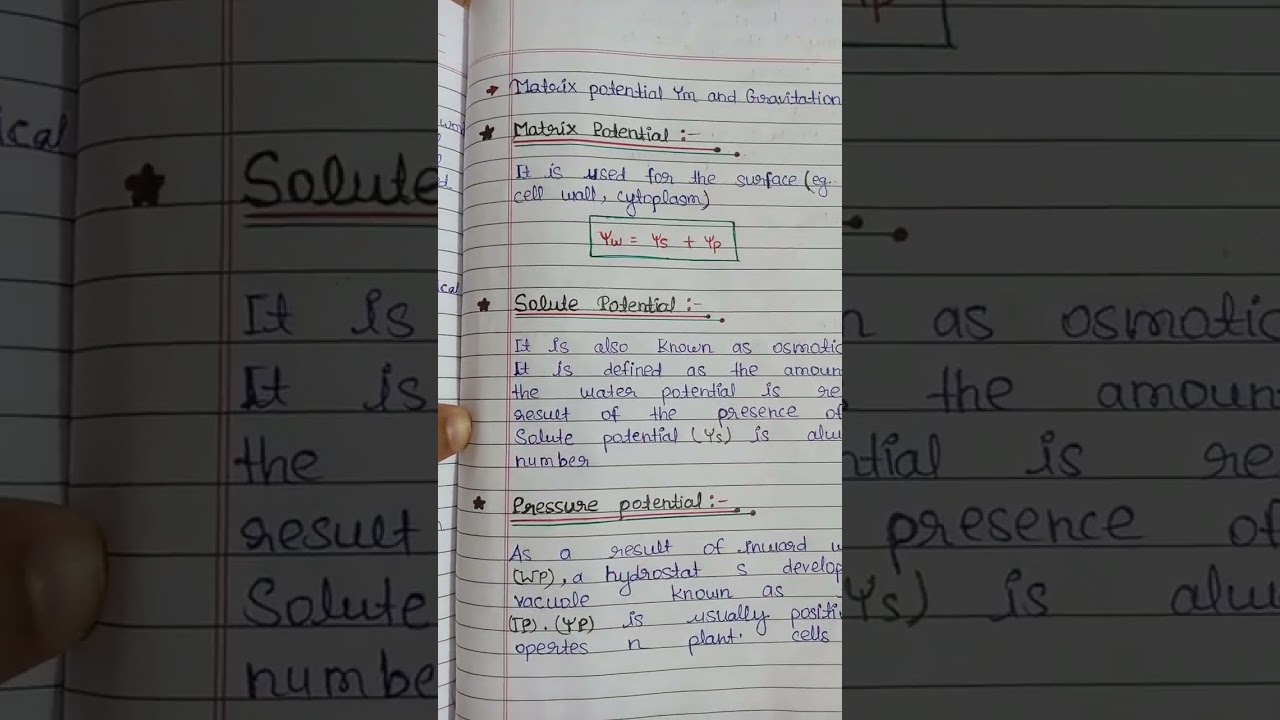 → Matrix potential Ψm and Gravitation
★ Matrix Potential :-
It is used for the surface (eg.
cell wall, cytoplasm)
Ψw = Ψs + Ψp
★ Solute Potential :-
It is also known as osmotic
It is defined as the amoun
the water potential is re
result of the presence of
Solute potential (Ψs) is alw
number
★ Pressure potential :-
As a result of inward w
(WP), a hydrostat s develop
vacuole known as
(TP). (ΨP) is usually positi
opertes n plant. cells